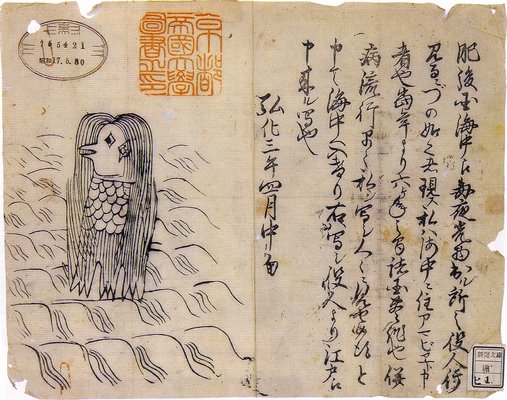 肥後国海中え毎夜光物出ル所之役人行
見るニづの如之者現ス私ハ海中ニ住アマビヱト申
者也当年より六ヶ年之間諸国豊作也併
病流行早々私写シ人々ニ見セ候得と
申て海中へ入けり右写シ役人より江戸え
申来ル写也
弘化三年四月中旬
京都
帝國大學
圖書之印
165421
昭和17.6.30
新聞文庫